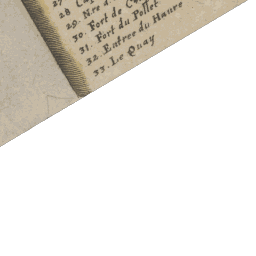 27
28 Ca
29. N.re d
30. Fort de C
31. Fort du Pollet
32. Entree du Haure
33. Le Quay